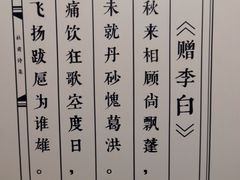 《赠李白》
秋来相顾尚飘蓬，
未就丹砂愧葛洪。
痛饮狂歌空度日，
飞扬跋扈为谁雄。
杜甫诗集